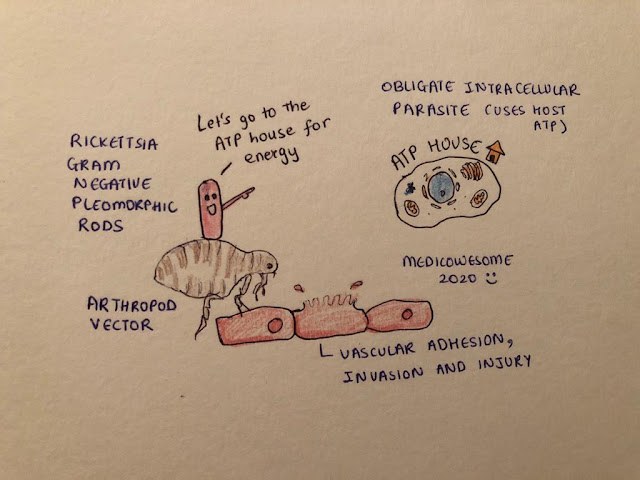 RICKETTSIA
GRAM
NEGATIVE
PLEOMORPHIC
RODS
Let's go to the
ATP house for
energy
OBLIGATE INTRACELLULAR
PARASITE (USES HOST
ATP)
ATP HOUSE
MEDICOWESOME
2020
ARTHROPOD
VECTOR
VASCULAR ADHESION,
INVASION AND INJURY